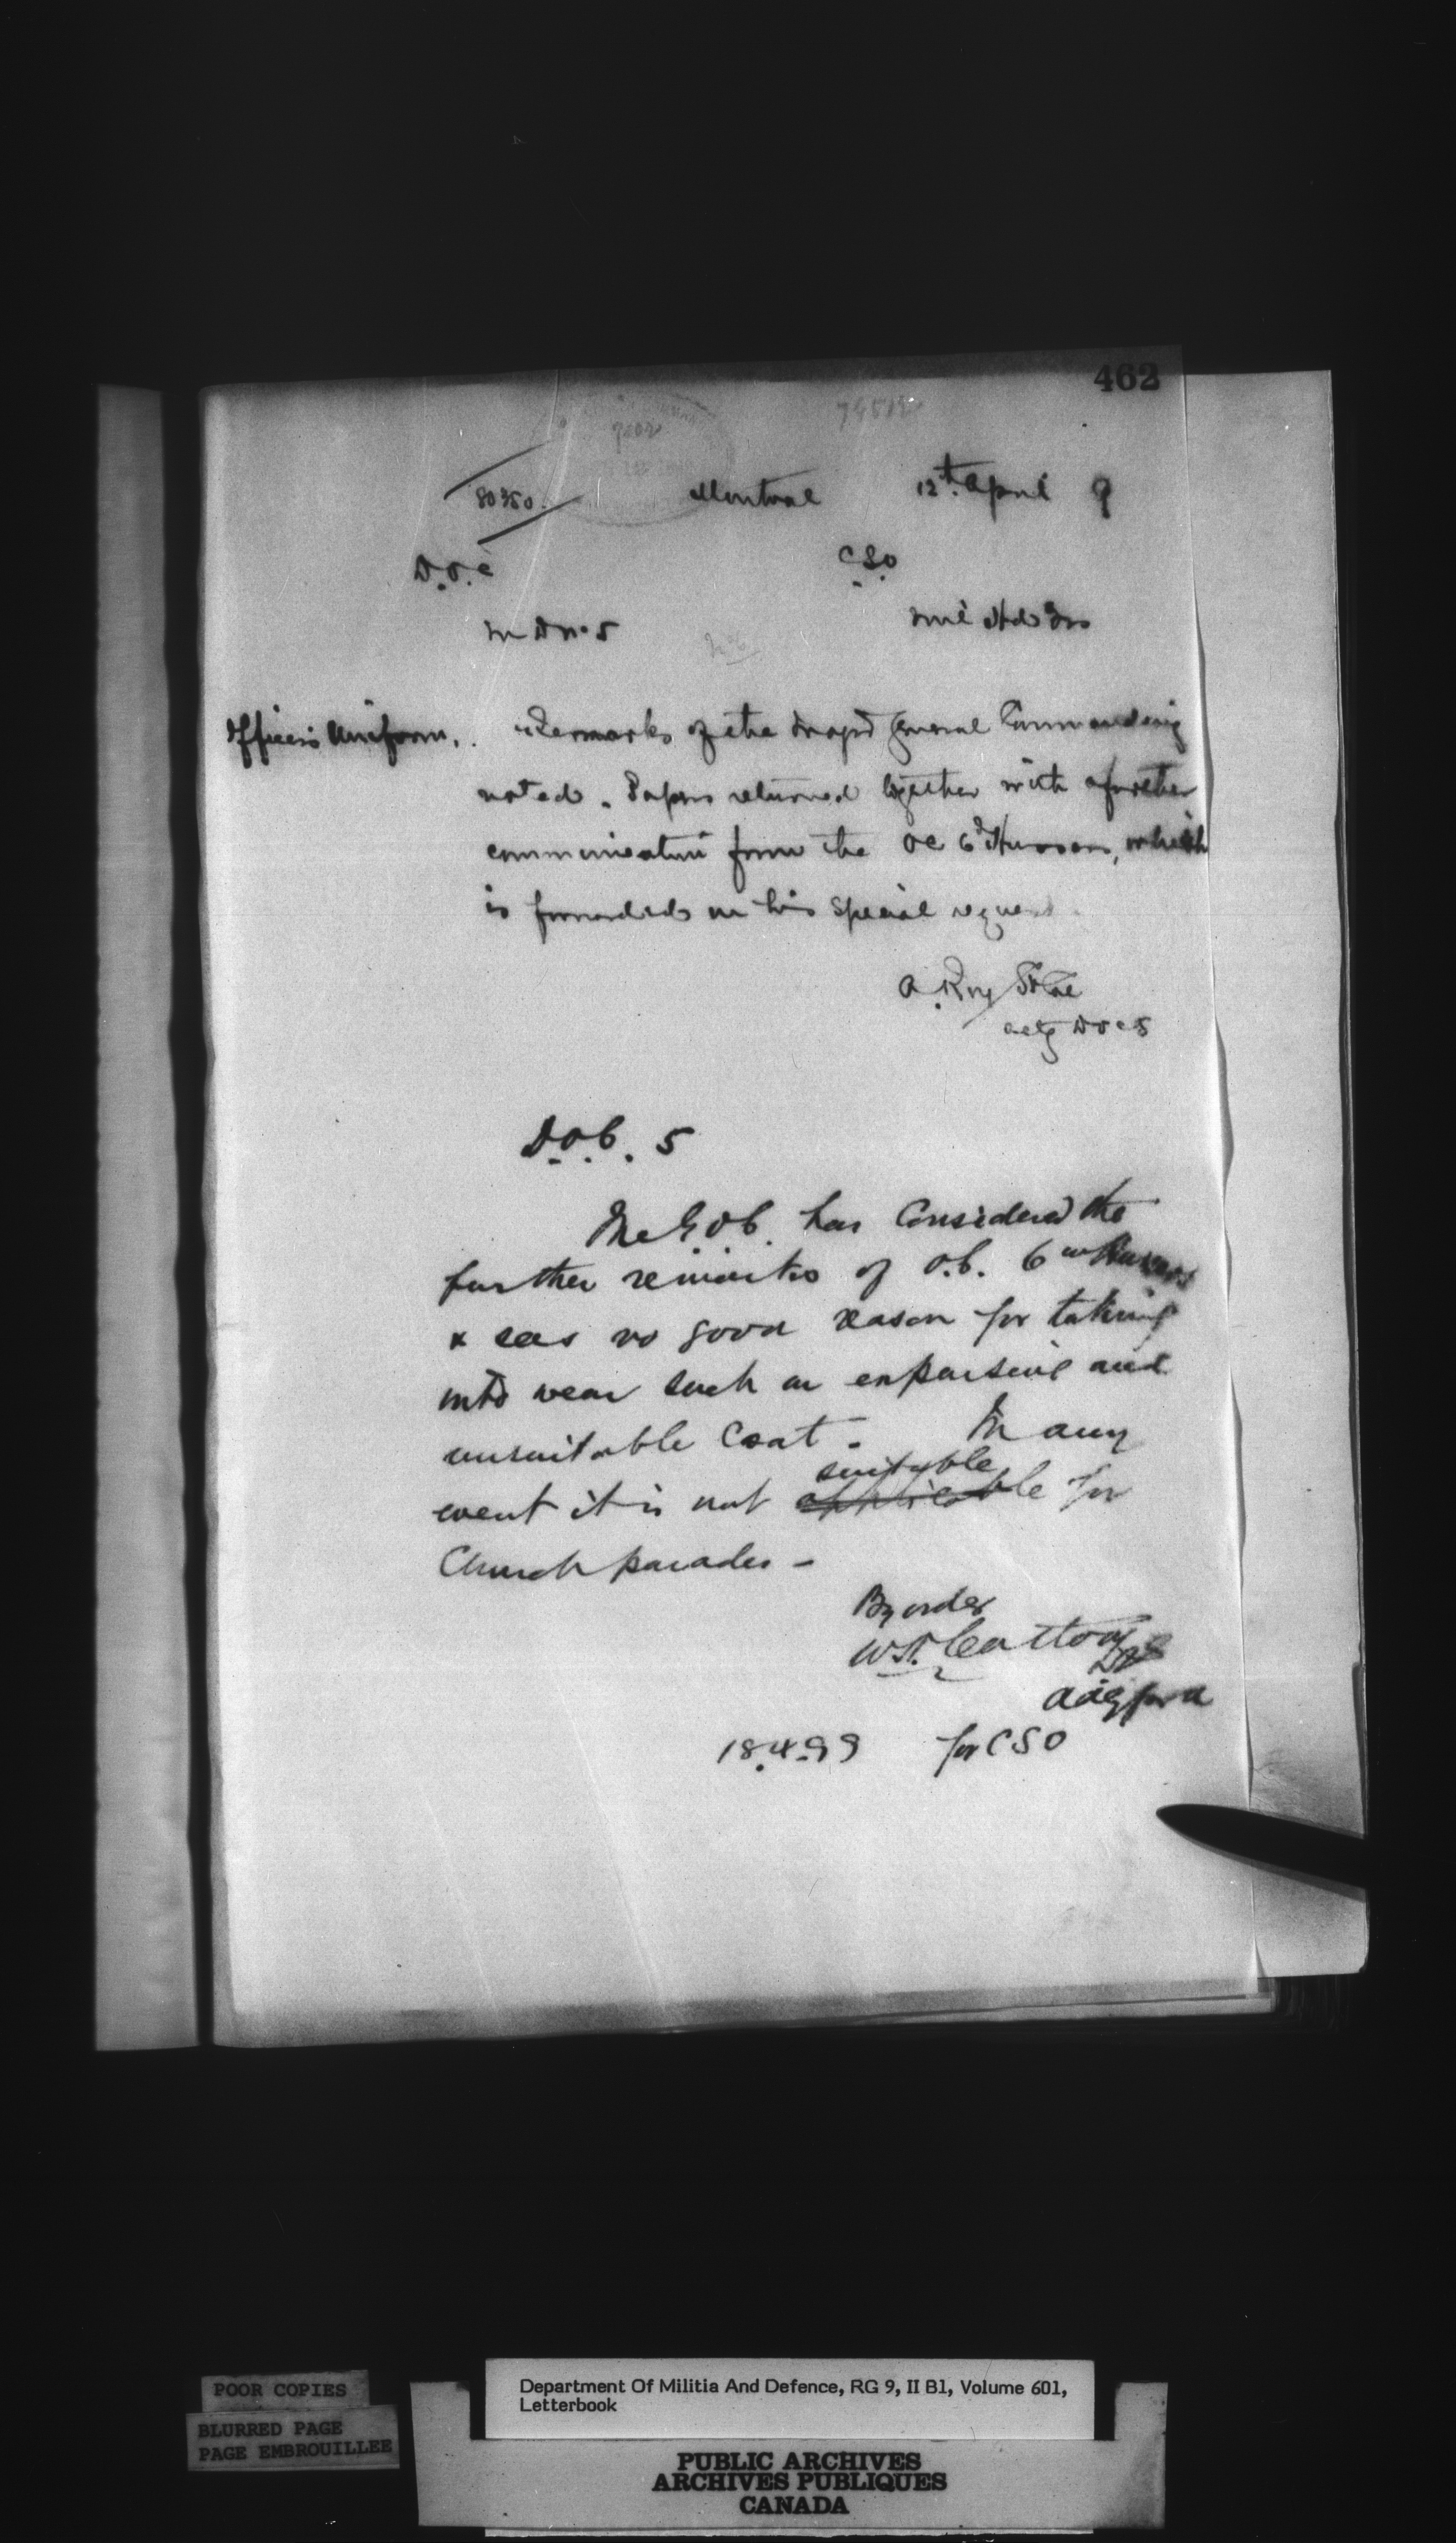 462
80350.
Montreal 12th April 9
D.O.C
C.S.O.
M D No 5
Mil Hd Qrs
Officer's Uniform.
Remarks of the Major General Commanding
noted. Papers returned together with a further
communication from the OC 6th Hussars, which
is forwarded on his special request
A. Roy
actg DOC 5
D.O.C. 5
The G.O.C. has considered the
further remarks of O.C. 6th Hussars
& sees no good reason for taking
into wear such an expensive and
unsuitable coat - In any
suitable
event it is not applicable for
Church parades -
By order
Cotton
AAG for A
18.4.99 for CSO
POOR COPIES
BLURRED PAGE
PAGE EMBROUILLEE
Department Of Militia And Defence, RG 9, II B1, Volume 601,
Letterbook
PUBLIC ARCHIVES
ARCHIVES PUBLIQUES
CANADA